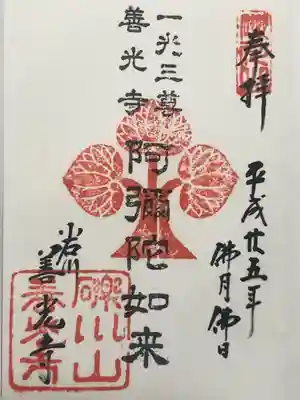 奉拝
平成廿五年
佛月佛日
一光三尊
善光寺
阿彌陀如来
小石川
善光寺
礫川山
善光寺